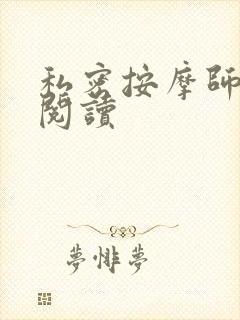 私密按摩師
閱讀
夢悱夢